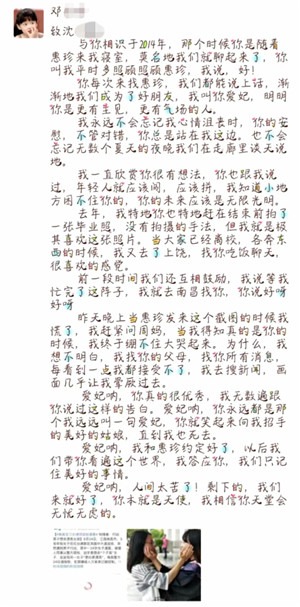 邓
致沈
与你相识于2019年，那个时候你是随着
惠珍来我寝室，莫名地我们就聊起来了，你
叫我平时多照顾照顾惠珍，我说，好！
你每次来找惠珍，我们都能说上话，渐
渐地我们成为了好朋友，我叫你爱妃，明明
你是更有主见，更有气场的人。
我永远不会忘记我心情沮丧时，你的安
慰，不管对错，你总是站在我这边。也不会
忘记无数个夏天的夜晚我们在走廊里谈天说
地。
我一直欣赏你很有想法，你也跟我说
过，年轻人就应该闯，应该拼，我知道小地
方困不住你的，你的未来应该是无限光明。
去年，我特地你也特地赶在结束前拍了
一张毕业照，没有拍摄的手法，但我就是极
其喜欢这张照片。当大家已经离校，各奔东
西的时候，我又去了上饶，找你吃饭聊天，
很喜欢的感觉。
前一段时间我们还互相鼓励，我说等我
忙完了这阵子，我就去南昌找你，你说好呀
好呀
昨天晚上当惠珍发来这个截图的时候我
慌了，我赶紧问周妈，当我得知真的是你的
时候，我终于绷不住大哭起来。为什么，我
想不明白，我找你的父母，找你所有消息，
每看到一点我都接受不了，我去搜新闻，画
面几乎让我晕厥过去。
爱妃呐，你真的很优秀，我无数遍跟
你说过这样的告白。爱妃呐，你永远都是那
个我远远叫一句爱妃，你就笑起来向我招手
的美好的姑娘，直到我也死去。
爱妃呐，我和惠珍约定好了，以后我
们带你看遍这个世界，我答应你，我们只记
住美好的事情。
爱妃呐，人间太苦了！剩下的，我们
来就好了，你本就是天使，我相信你天堂会
无忧无虑的。